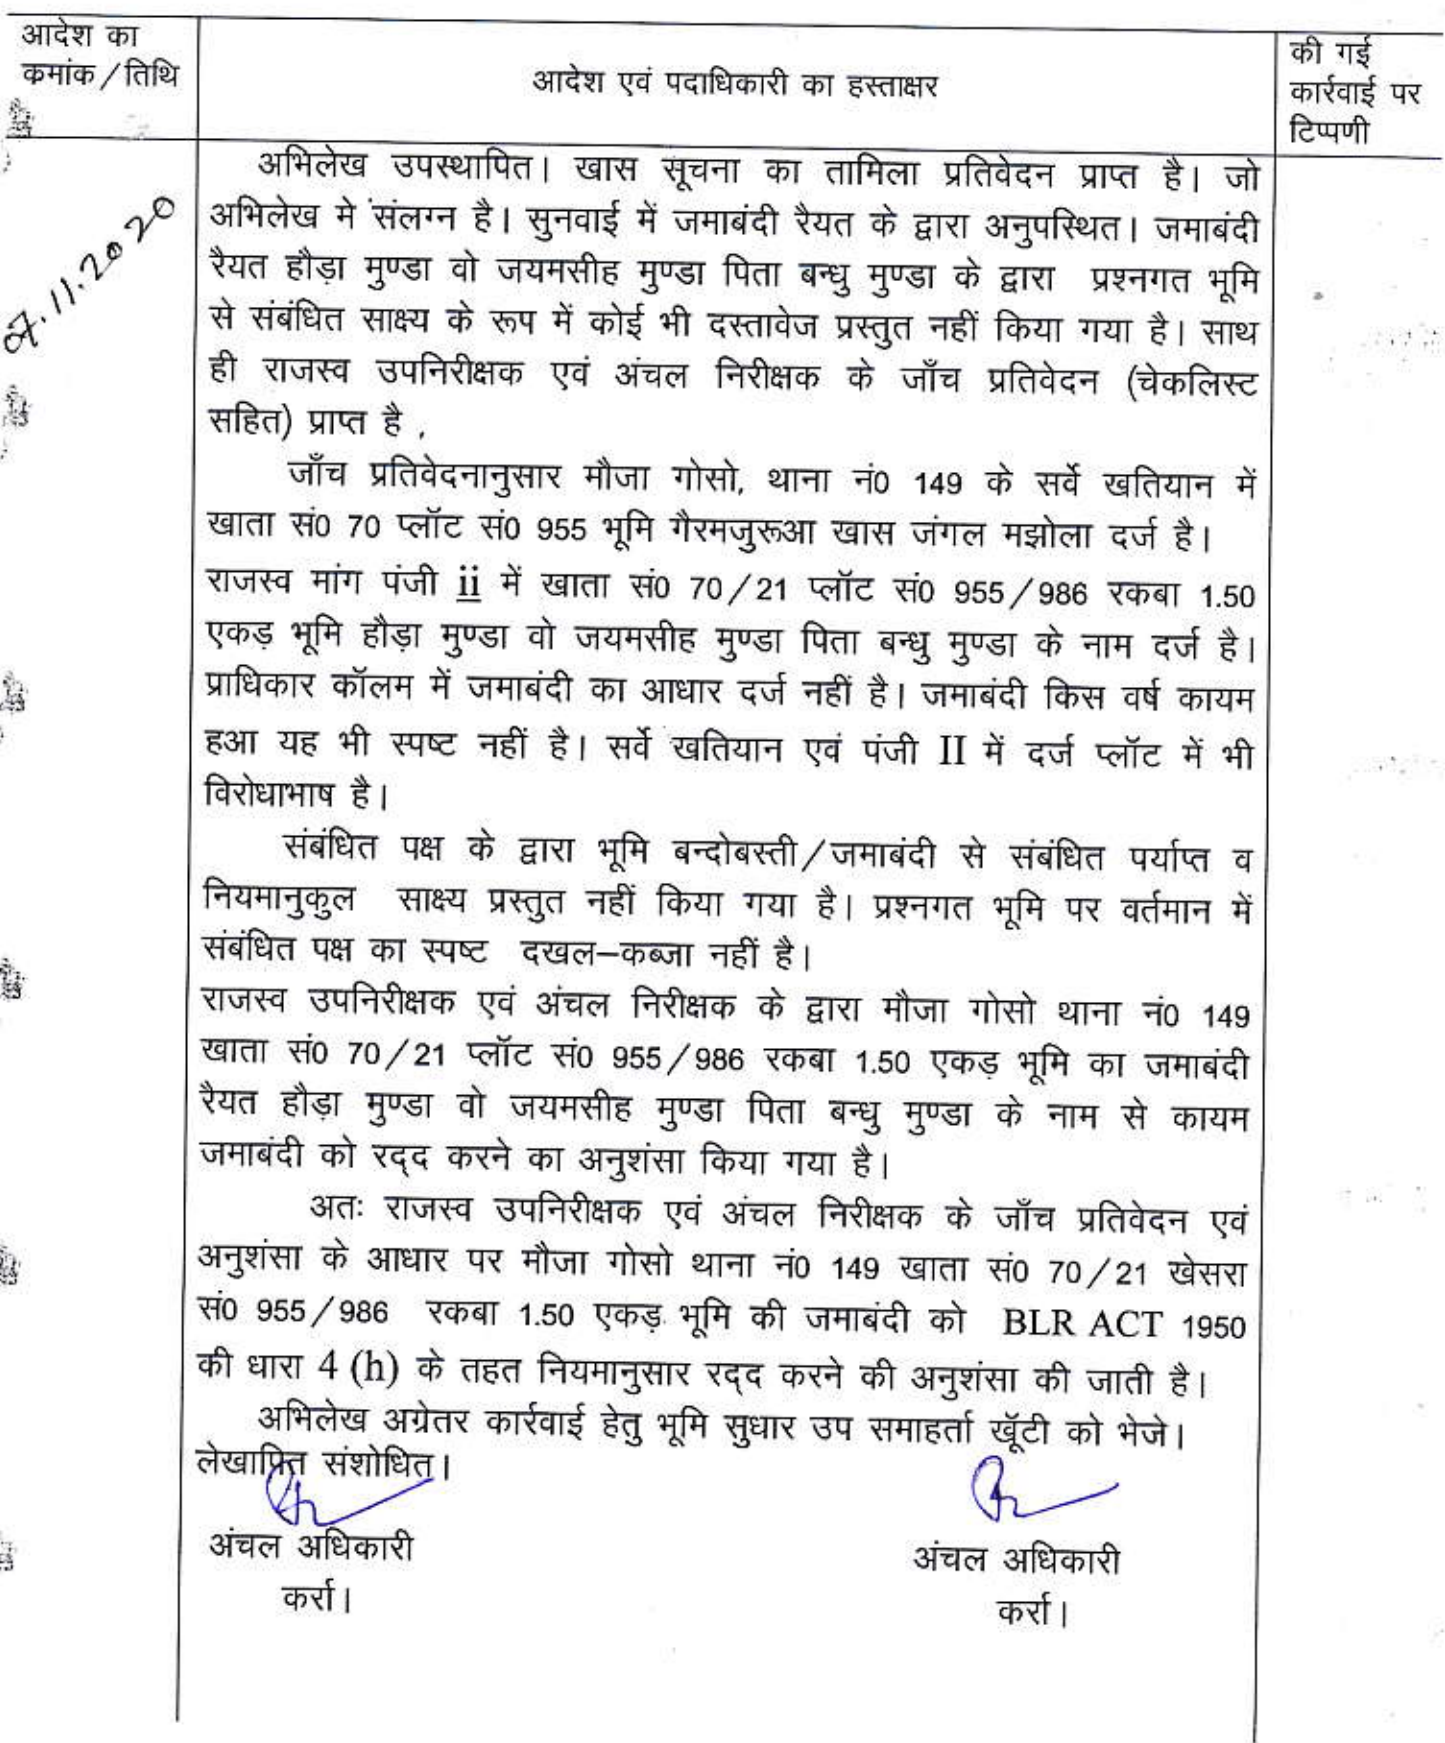 आदेश का
कमांक/तिथि
आदेश एवं पदाधिकारी का हस्ताक्षर
की गई
कार्रवाई पर
टिप्पणी
07.11.2020
अभिलेख उपस्थापित। खास सूचना का तामिला प्रतिवेदन प्राप्त है। जो
अभिलेख मे संलग्न है। सुनवाई में जमाबंदी रैयत के द्वारा अनुपस्थित। जमाबंदी
रैयत हौड़ा मुण्डा वो जयमसीह मुण्डा पिता बन्धु मुण्डा के द्वारा प्रश्नगत भूमि
से संबंधित साक्ष्य के रूप में कोई भी दस्तावेज प्रस्तुत नहीं किया गया है। साथ
ही राजस्व उपनिरीक्षक एवं अंचल निरीक्षक के जाँच प्रतिवेदन (चेकलिस्ट
सहित) प्राप्त है ,
जाँच प्रतिवेदनानुसार मौजा गोसो, थाना नं0 149 के सर्वे खतियान में
खाता सं0 70 प्लॉट सं0 955 भूमि गैरमजुरूआ खास जंगल मझोला दर्ज है।
राजस्व मांग पंजी ii में खाता सं0 70/21 प्लॉट सं0 955/986 रकबा 1.50
एकड़ भूमि हौड़ा मुण्डा वो जयमसीह मुण्डा पिता बन्धु मुण्डा के नाम दर्ज है।
प्राधिकार कॉलम में जमाबंदी का आधार दर्ज नहीं है। जमाबंदी किस वर्ष कायम
हआ यह भी स्पष्ट नहीं है। सर्वे खतियान एवं पंजी II में दर्ज प्लॉट में भी
विरोधाभाष है।
संबंधित पक्ष के द्वारा भूमि बन्दोबस्ती/जमाबंदी से संबंधित पर्याप्त व
नियमानुकुल साक्ष्य प्रस्तुत नहीं किया गया है। प्रश्नगत भूमि पर वर्तमान में
संबंधित पक्ष का स्पष्ट दखल–कब्जा नहीं है।
राजस्व उपनिरीक्षक एवं अंचल निरीक्षक के द्वारा मौजा गोसो थाना नं0 149
खाता सं0 70/21 प्लॉट सं0 955/986 रकबा 1.50 एकड़ भूमि का जमाबंदी
रैयत हौड़ा मुण्डा वो जयमसीह मुण्डा पिता बन्धु मुण्डा के नाम से कायम
जमाबंदी को रद्द करने का अनुशंसा किया गया है।
अतः राजस्व उपनिरीक्षक एवं अंचल निरीक्षक के जाँच प्रतिवेदन एवं
अनुशंसा के आधार पर मौजा गोसो थाना नं0 149 खाता सं0 70/21 खेसरा
सं0 955/986 रकबा 1.50 एकड़ भूमि की जमाबंदी को BLR ACT 1950
की धारा 4 (h) के तहत नियमानुसार रद्द करने की अनुशंसा की जाती है।
अभिलेख अग्रेतर कार्रवाई हेतु भूमि सुधार उप समाहर्ता खूँटी को भेजे।
लेखापित संशोधित।
अंचल अधिकारी
कर्रा।
अंचल अधिकारी
कर्रा।